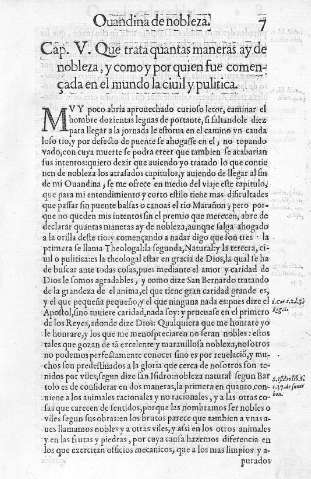 Ouandina de nobleza. 7
Cap. V. Que trata quantas maneras ay de
nobleza, y como y por quien fue comen-
çada en el mundo la ciuil y pulitica.
MVY poco abria aprouechado curioso letor, caminar el
hombre dozientas leguas de portante, si faltandole diez
para llegar a la jornada le estorua en el camino vn cauda
loso rio, y por defecto de puente se ahogasse en el, no topando
vado, con cuya muerte se podra creer que tambien se acabarian
sus intentos: quiero dezir que auiendo yo tratado lo que contie
nen de nobleza los atrasados capitulos, y auiendo de llegar al fin
de mi Ouandina, se me ofrece en medio del viaje este capitulo,
que para mi entendimiento y corto estilo tiene mas dificultades
que passar sin puente balsas o canoas el rio Marañon; pero por-
que no queden mis intentos sin el premio que merecen, abre de
declarar quantas maneras ay de nobleza, aunque salga ahogado
a la orilla deste rio: y començando a nadar digo que son tres la
primera se llama Theologal: la segunda, Natural: y la tercera, ci-
uil o pulitica: la theologal estar en gracia de Dios, la qual se ha
de buscar ante todas colas, pues mediante el amor y caridad de
Dios le somos agradables, y como dize San Bernardo tratando
de la grandeza de el anima, el que tiene gran caridad grande es,
y el que pequeña pequeño, y el que ninguna nada es: pues dize el
Apostol, sino tuuiere caridad, nada soy: y prueuase en el primero
de los Reyes, adonde dize Dios: Qualquiera que me honrare yo
le honrare, y los que me menospreciaren no seran nobles: estos
tales que gozan de tã excelente y marauillosa nobleza, nosotros
no podemos perfectamente conocer sino es por reuelació, y mu-
chos son predestinados a la gloria que cerca de nosotros son te-
nidos por viles, segun dize san Isidro: nobleza natural segun Bar
tolo es de considerar en dos maneras, la primera en quanto con-
uiene a los animales racionales y no racionales, y a las otras co-
sas que carecen de sentidos, porque las nombramos ser nobles o
viles segun sus obras: en los brutos parece que tambien a vnas a-
ues llamamos nobles y a otras viles, y assi en los otros animales
y en las frutas y piedras, por cuya causa hazemos diferencia en
los que exercitan oficios mecanicos, que a los mas limpios y a-
purados